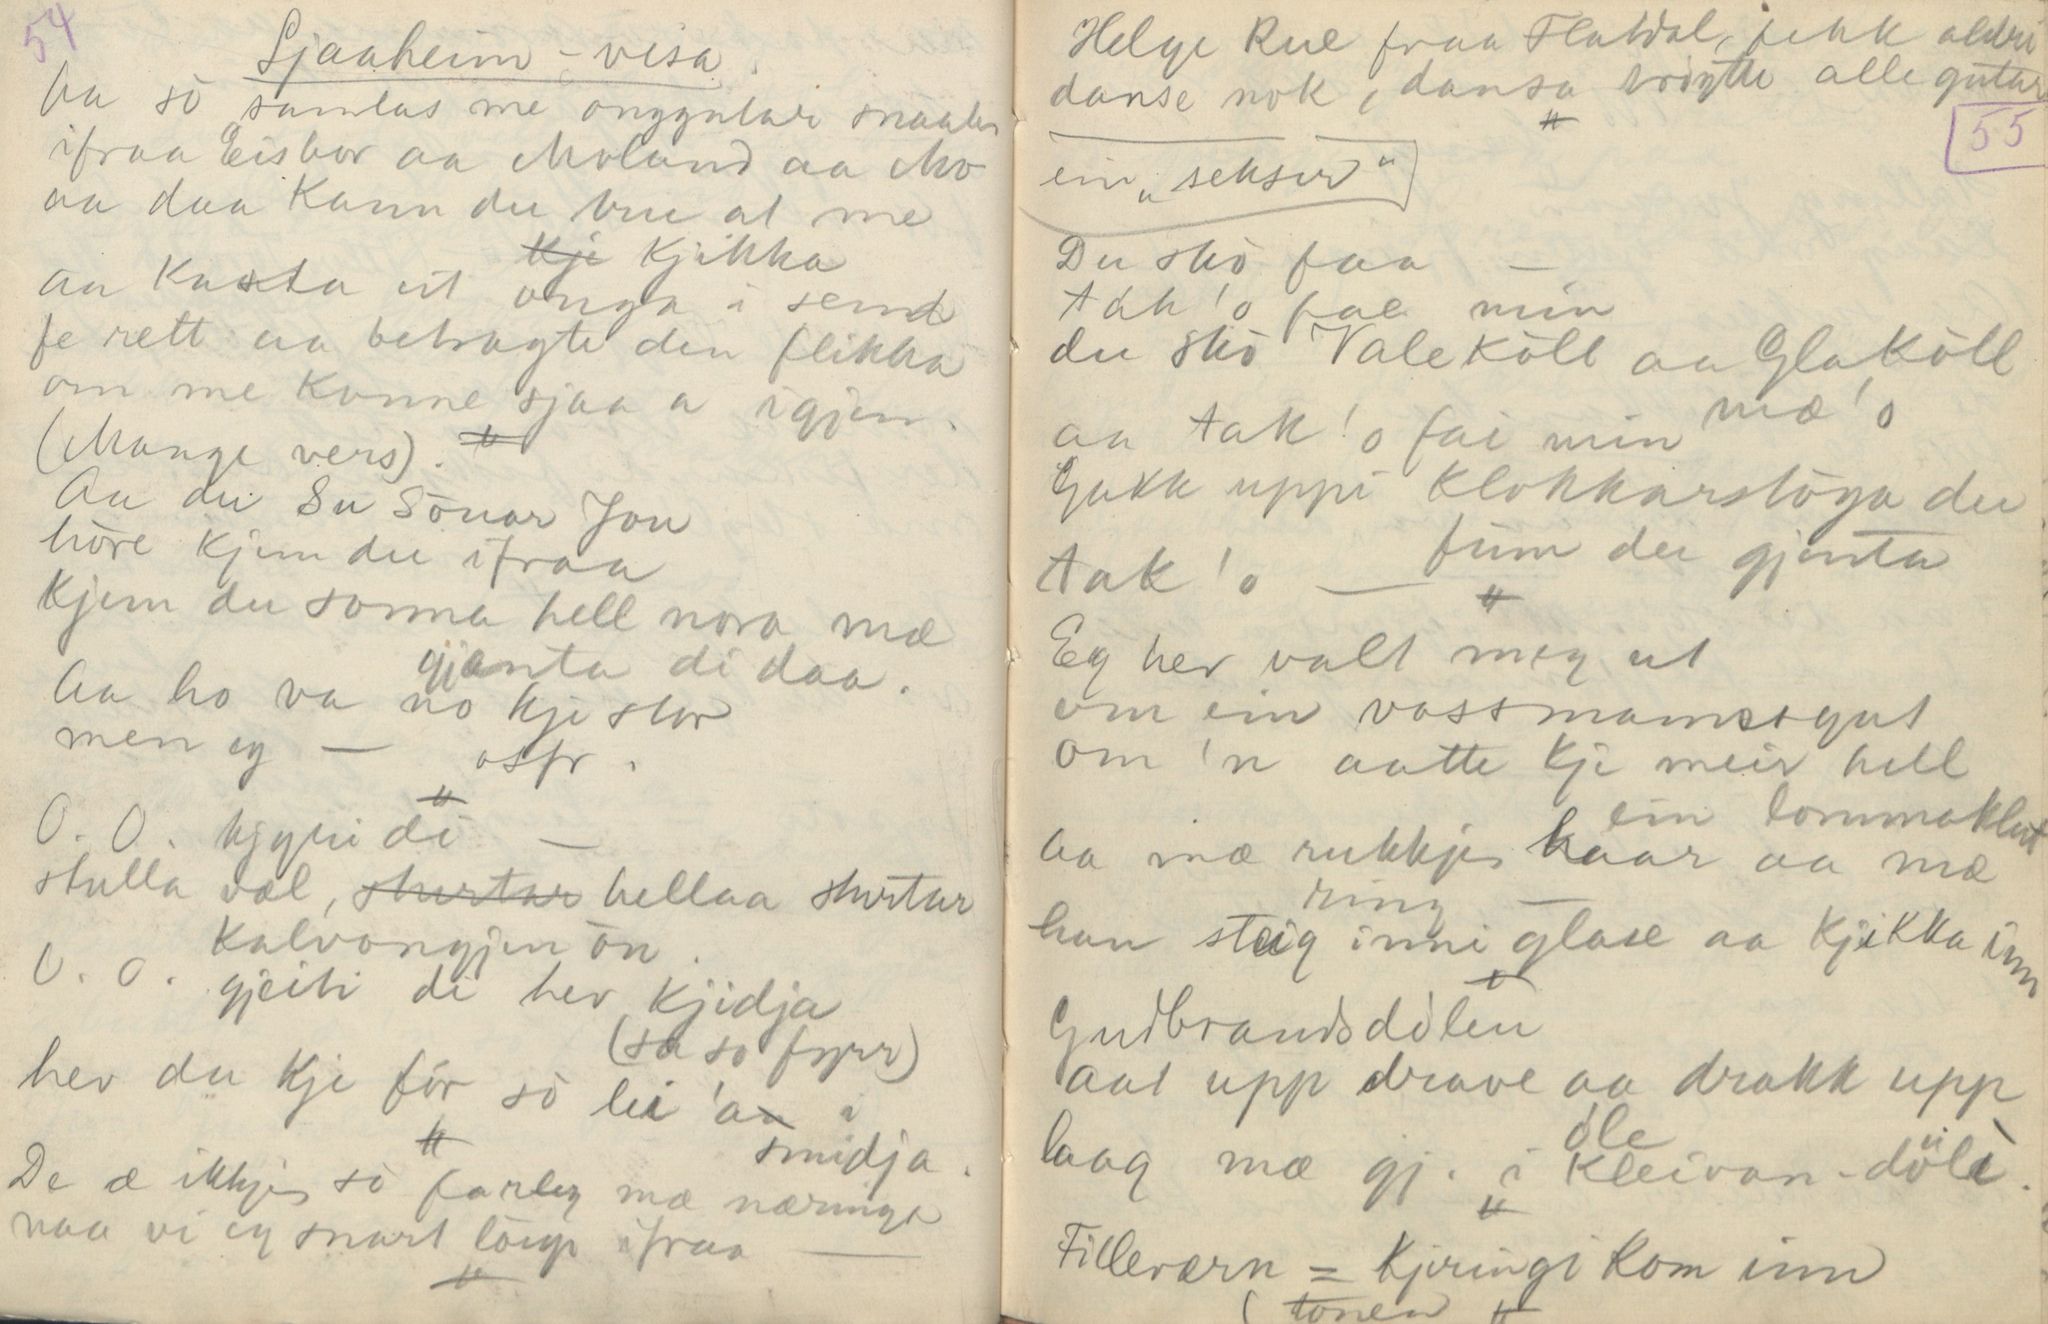 54
Sjaaheim - visa.
Aa so samlas me onggutar
ifraa Eisbor aa Moland aa Mo
aa daa kann du tru at me
Kje Kjikka
aa kasta ut onga i send
fe rett aa betragte den flikka
om me konne sjaa a igjen.
(Mange vers).
Aa du Su Sònar Jon
hòre kjem du ifraa
kjem du sonna hell nora mæ
gjenta di daa.
Aa ho va no kje stor
men eg — osfr.
O. O. kjyri di —
stulla væl, sturtar hellaa sturtar
kalvongjen òn.
O. O. gjeiti di hev kjidja
(sa so fyrr)
hev du kje fòr sò lei 'an i
smidja.
De æ ikkje sò farleg mæ næringe
naa vi eg snart löup ifraa —
Helge Rue fraa Flatdal, fekk aldri
danse nok, dansa tröytte alle gutar
55
ein „seksur"
Du skò faa —
tak 'o fae min
du skò Valeköll aa Glaköll
mæ 'o
aa tak 'o fai min
Gakk uppi Klokkarstòga du
finn dei gjenta
tak 'o —
Eg hev valt meg ut
om ein vossmannsgut
om 'n aatte kje meir hell
ein lommaklut
aa mæ rukkje haar aa mæ
ring —
han steig inni glase aa kjikka inn
Gudbrandsdòlen
aat upp drave aa drakk upp
òle
laag mæ gj. i Kleivan-döli.
Filleværn = Kjeringi kom inn
(tonen